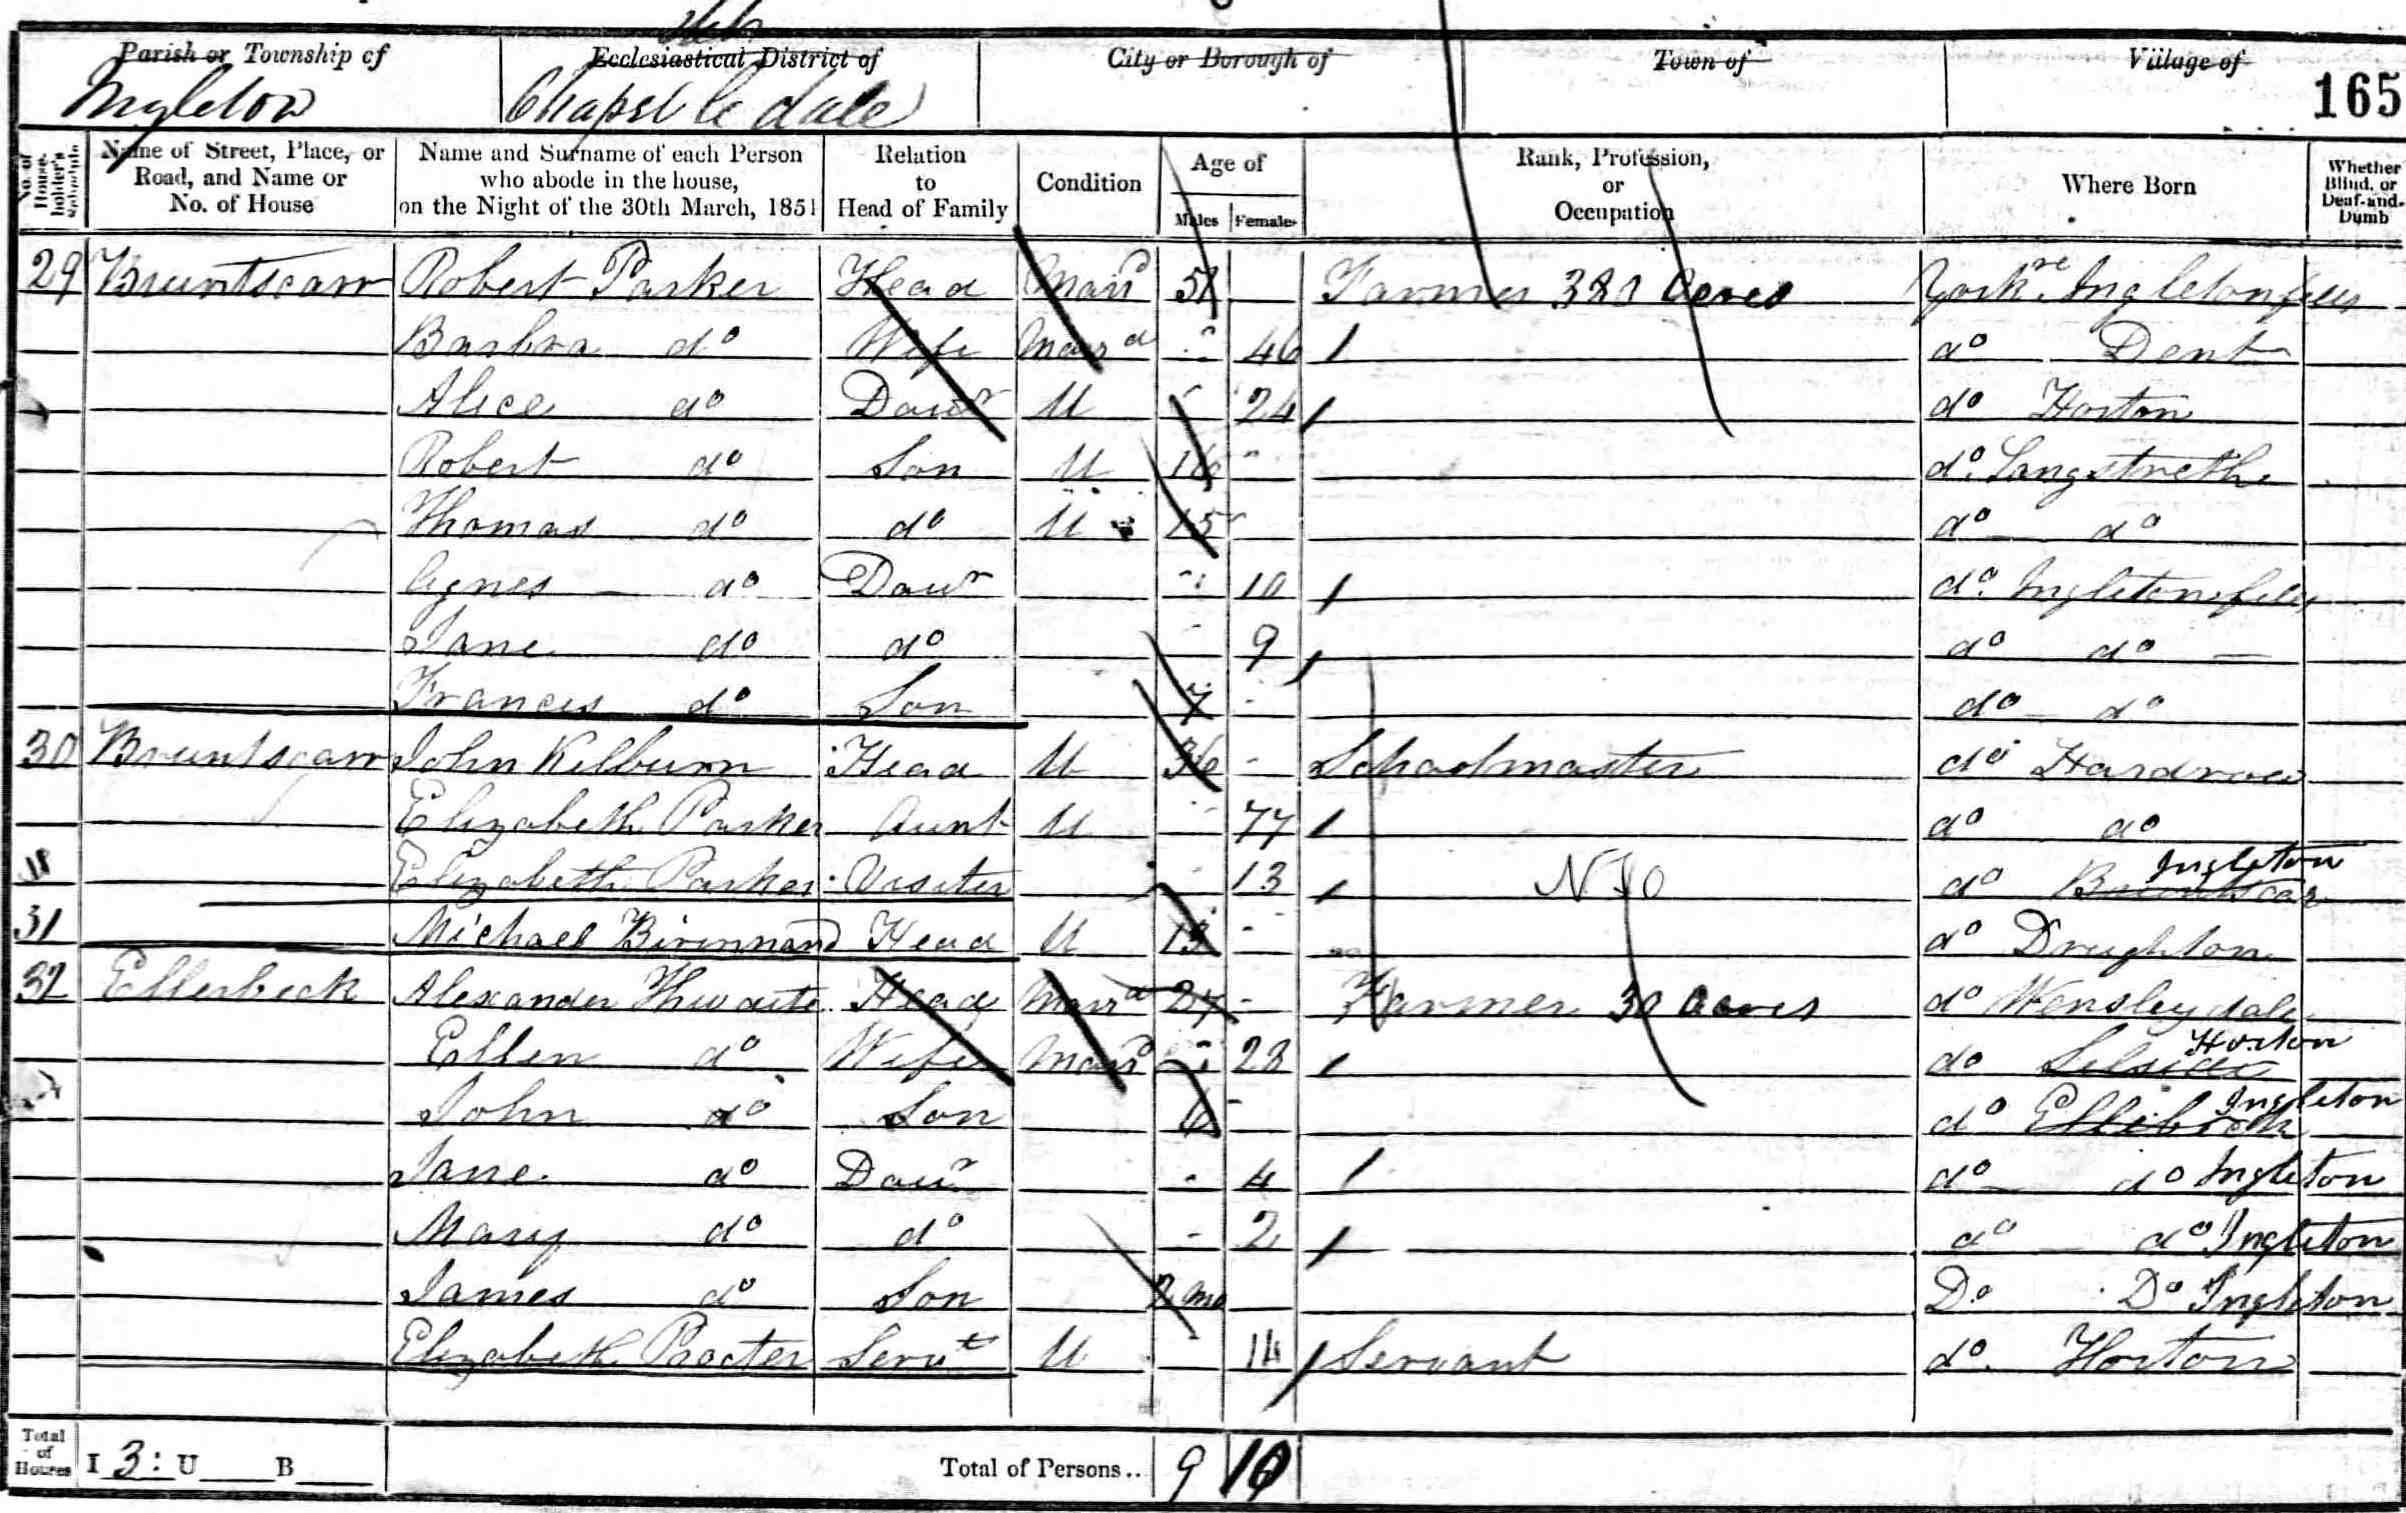 Parish or Township of
Ecclesiastical District of
City or Borough of
Town of
Village of
Ingleton
Chapel le dale
165
No. of House-holder's Schedule
Name of Street, Place, or Road, and Name or No. of House
Name and Surname of each Person who abode in the house, on the Night of the 30th March, 1851
Relation to Head of Family
Condition
Age of
Males
Females
Rank, Profession, or Occupation
Where Born
Whether Blind, or Deaf-and-Dumb
29 Bruntscarr Robert Parker Head Marrd 51 Farmer 380 Acres Yorkre Ingletonfells
Barbra do Wife Marrd 46 do Dent
Alice do Daur U 24 do Horton
Robert do Son U 16 do Langstrethe
Thomas do do U 15 do do
Agnes do Daur 10 do Ingletonfells
Jane do do 9 do do
Francis do Son 7 do do
30 Bruntscarr John Kilburn Head U 36 Schoolmaster do Hardraw
Elizabeth Parker Aunt U 77 do do
Elizabeth Parker Visiter 13 do Bruntscar Ingleton
31 Michael Birennand Head U 19 do Draughton
32 Ellerbeck Alexander Thwaite Head Marrd 27 Farmer 30 Acres do Wensleydale
Ellen do Wife Marrd 28 do Selside Horton
John do Son 6 do Ellebeck Ingleton
Jane do Daur 4 do do Ingleton
Mary do do 2 do do Ingleton
James do Son 2 mo Do Do Ingleton
Elizabeth Procter Servt U 14 Servant do Horton
Total of Houses I 3 : U B Total of Persons.. 9 10